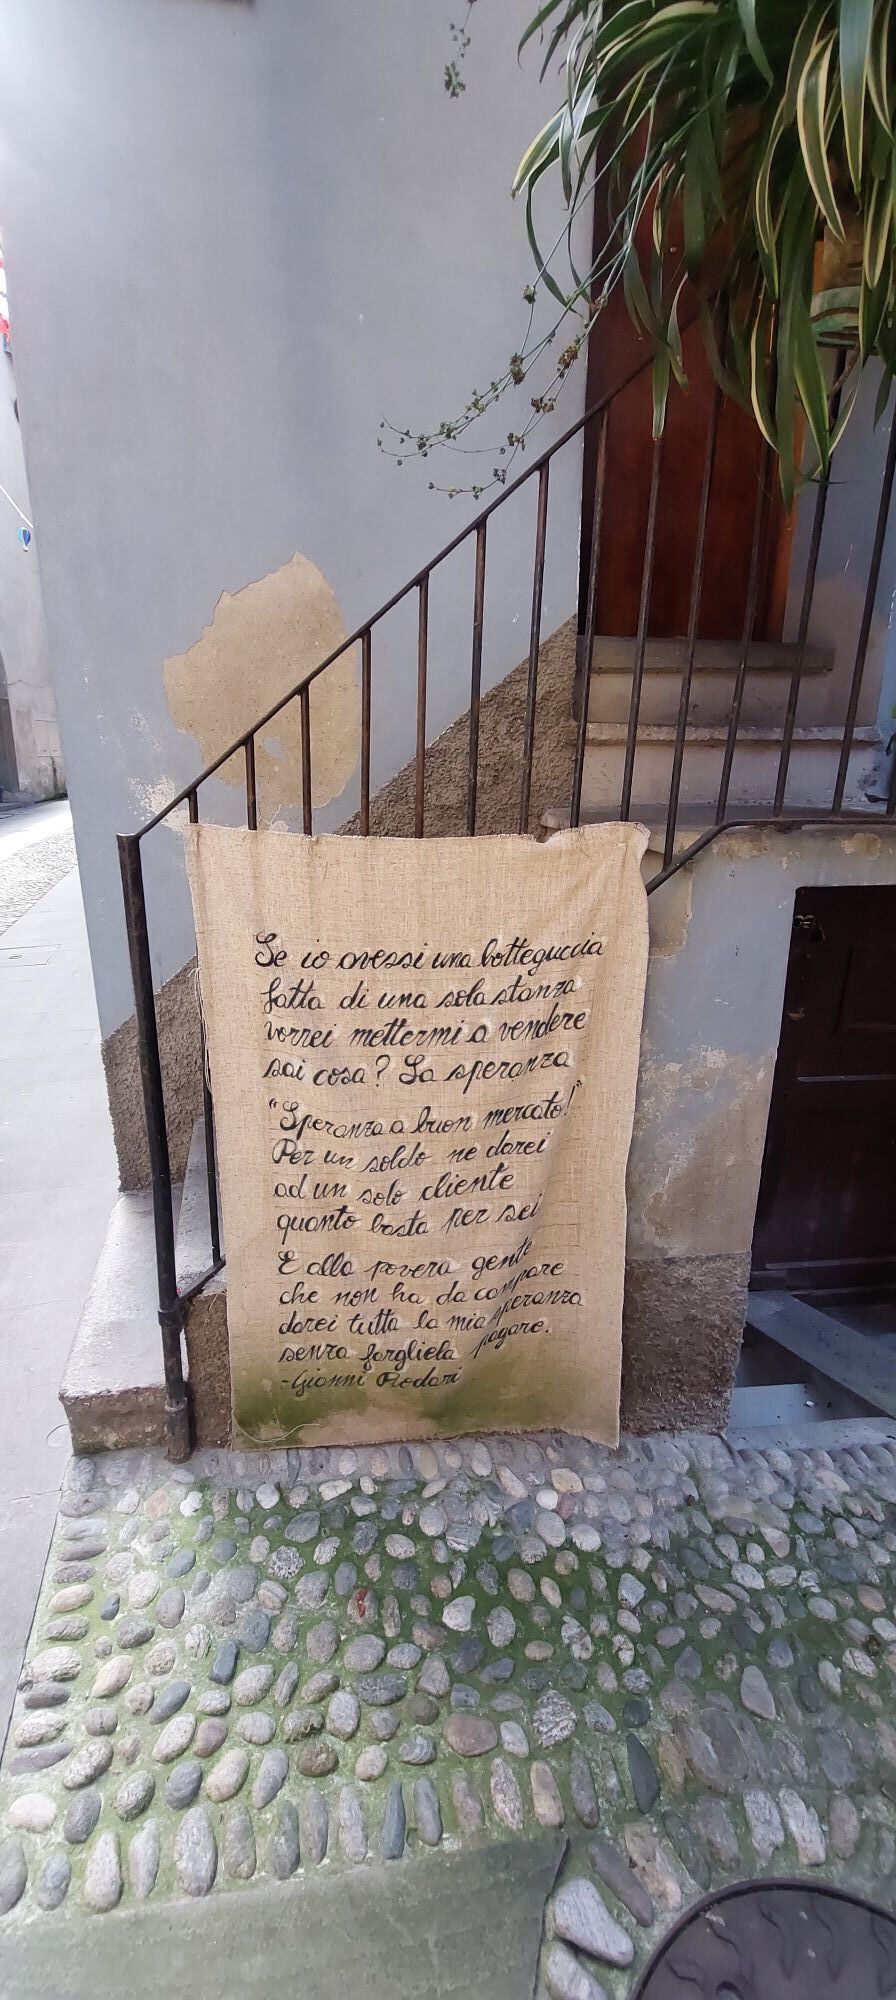 Se io avessi una botteguccia
fatta di una sola stanza
vorrei mettermi a vendere
sai cosa? La speranza
"Speranza a buon mercato!"
Per un soldo ne darei
ad un solo cliente
quanto basta per sei
E alla povera gente
che non ha da campare
darei tutta la mia speranza
senza fargliela pagare.
-Gianni Rodari